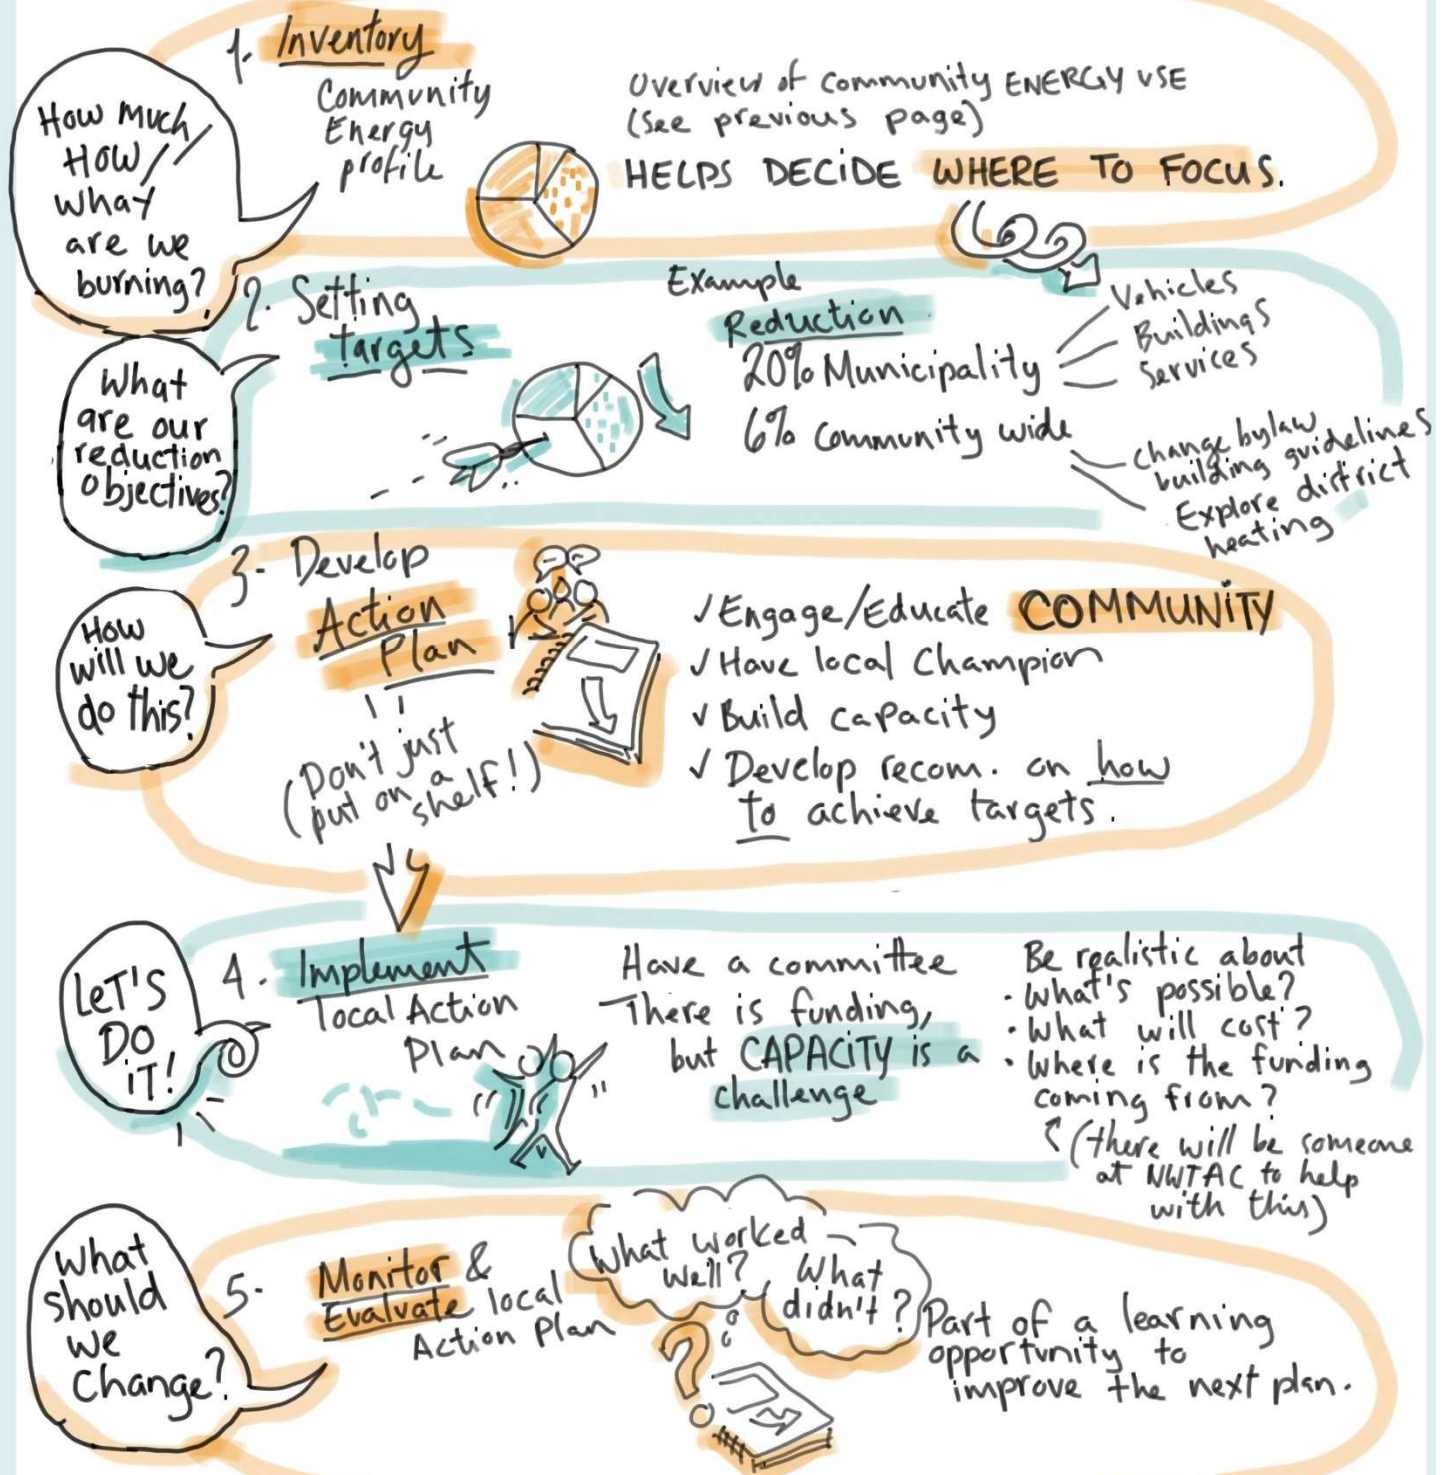 How much/
How//
what
are we
burning?
1. Inventory
Community
Energy
profile
Overview of Community ENERGY USE
(see previous page)
HELPS DECIDE WHERE TO FOCUS.
What
are our
reduction
objectives?
2. Setting
targets
Example
Reduction
20% Municipality
Vehicles
Buildings
Services
6% Community wide
change bylaw
building guidelines
Explore district
heating
How
will we
do this?
3- Develop
Action
Plan
(Don't just
put on a
shelf!)
✓ Engage/Educate COMMUNITY
✓ Have local Champion
✓ Build capacity
✓ Develop recom. on how
to achieve targets.
LET'S
DO
IT!
4. Implement
local Action
Plan
Have a committee
There is funding,
but CAPACITY is a
challenge
Be realistic about
· What's possible?
· What will cost?
· Where is the funding
coming from?
(there will be someone
at NWTAC to help
with this)
What
should
we
Change?
5. Monitor &
Evaluate local
Action Plan
What worked
well?
What
didn't?
Part of a learning
opportunity to
improve the next plan.